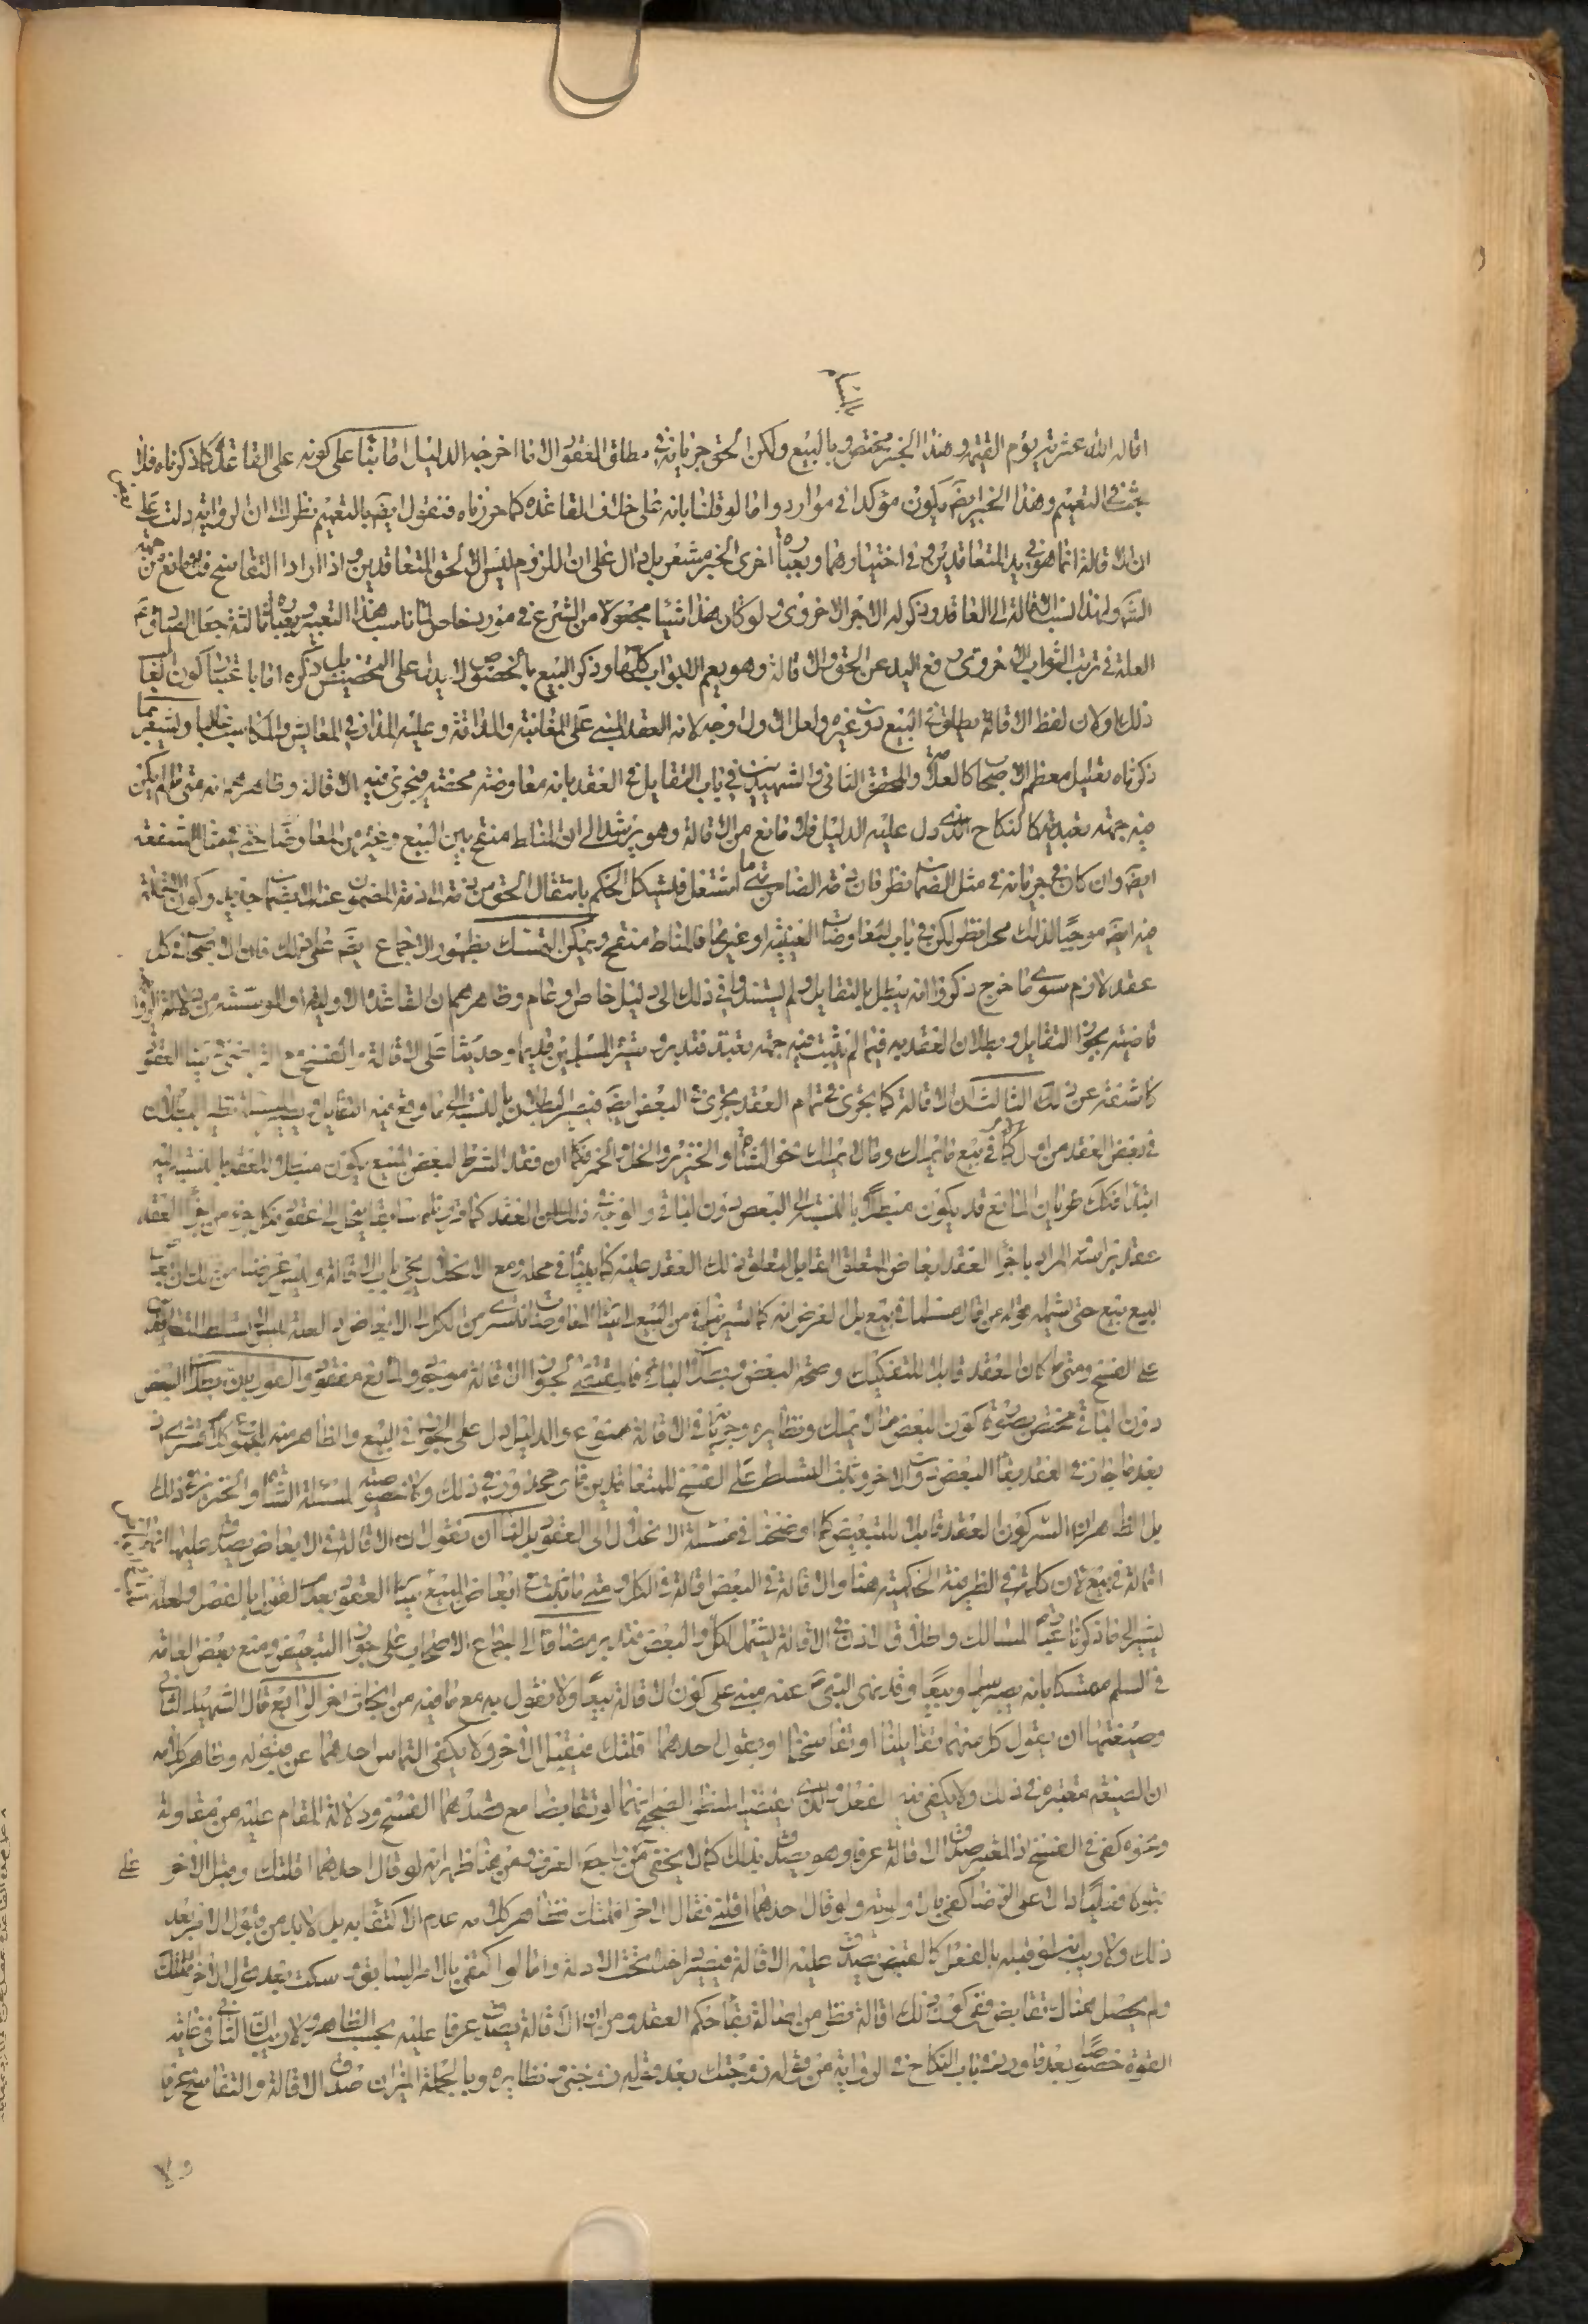 اقاله الله عثرته يوم القيمة وهذا الخبر مختص بالبيع ولكن الحق جريانه في مطلق العقود الا ما اخرجه الدليل اما بناء على كونه على القاعدة كما ذكرناه فلا
بحث في التعميم وهذا الخبر ايضا يكون مؤكدا في موارده واما لو قلنا بانه على خلاف القاعدة كما حررناه فنقول ايضا بالتعميم نظرا الى ان الرواية دلت على
ان الاقالة انما هو بيد المتعاقدين وفي اختيارهما وبعبارة اخرى الخبر مشعر بل دال على ان اللزوم ليس الا لحق المتعاقدين واذا ارادا التفاسخ فلا مانع من جهة
الشرع ولهذا نسب الاقالة الى العاقد وذكر له الاجر الاخروي ولو كان هذا شيئا مجعولا من الشرع في مورد خاص لما ناسب هذا التعبير وبعبارة ثالثة جعل
العلة في ترتب الثواب الاخروي رفع اليد عن الحق والاقالة وهو يعم الابواب كلها وذكر البيع بالخصوص لا يدل على التخصيص بل ذكره اما باعتبار كون الغالب
ذلك او لان لفظ الاقالة يطلق في البيع دون غيره ولعل الاول اوجه لانه العقد المبني على المغابنة والمداقة وعليه المدار في المعايش والمكاسب غالبا ويشعر بما
ذكرناه تعليل معظم الاصحاب كالعلامة والمحقق الثاني والشهيدين في باب التقايل في العقد بانه معاوضة محضة فيجري فيه الاقالة وظاهرهم انه متى ما لم يكن
فيه جهة تعبدية كالنكاح الذي دل عليه الدليل فلا مانع من الاقالة وهو يرشد الى ان المناط منقح بين البيع وغيره من المعاوضات حتى في مثال الشفعة
ايضا وان كان في جريانه في مثل الضمان نظر فان ذمة الضامن متى ما اشتغل فيشكل الحكم بانتقال الحق من ذمته الى ذمة المضمون عنه الا بضمان جديد وكون الاقالة
فيه ايضا موجبا لذلك محل نظر لكن في باب المعاوضات العينية او غيرها فالمناط منقح ويمكن التمسك بظهور الاجماع ايضا على ذلك فان الاصحاب في كل
عقد لازم سوى ما خرج ذكروا انه يبطل بالتقايل ولم يستندوا في ذلك الى دليل خاص او عام وظاهرهم ان القاعدة الاولية او المؤسسة من دلالة الرواية
قاضية بجواز التقايل وبطلان العقد به فيما لم يثبت فيه جهة تعبد فتدبر وسيرة المسلمين قديما وحديثا على الاقالة والفسخ مع التراضي في العقود
كاشفة عن ذلك الثالث ان الاقالة كما يجري في تمام العقد يجري في البعض ايضا فيصير البطلان بالنسبة الى ما وقع فيه التقايل
في بعض العقد من اول كما في بيع ما يملك وما لا يملك نحو الشاة والخنزير والخل والخمر فكما ان فقد الشرط لبعض المبيع يكون مبطلا للعقد بالنسبة اليه
ابتداء فكذلك عريان المانع قد يكون مبطلا بالنسبة الى البعض دون الباقي والوجه في ذلك ان العقد كما قررناه سابقا ينحل الى عقود فكل جزء من اجزاء العقد
عقد برأسه المراد باجزاء العقد ابعاض المتعلق القابل لتعلق ذلك العقد عليه كما بينا في محله ومع الانحلال يجي باب الاقالة وليس غرضنا من ذلك ان بعض
البيع بيع حتى يشمله قوله من اقال مسلما في بيع بل الغرض انه
على الفسخ ومتى ما كان العقد قابلا للتفكيك وصحة البعض وبطلان الباقي فالمقتضي لجواز الاقالة موجود والمانع مفقود والقول بان بطلان البعض
دون الباقي مختص بصورة كون البعض مما لا يملك ونظائره وجريانه في الاقالة ممنوع والدليل دل على الجواز في البيع والظاهر منه المجموع
بعد ما جاز في العقد بقاء البعض دون الاخر وثبت التسلط على الفسخ للمتعاقدين فاي محذور في ذلك ولا خصوصية لمسئلة الشاة والخنزير في ذلك
بل الظاهر ان السر كون العقد قابلا للتبعيض كما اوضحنا في مسئلة الانحلال الى العقود بل لنا ان نقول ان الاقالة في الابعاض يصدق عليها انها
اقالة في بيع فان كلمة في الظرفية الحكمية هنا والاقالة في البعض اقالة في الكل
يشير الى ما ذكرنا عبارة المسالك واطلاق الاذن في الاقالة يشمل الكل والبعض فتدبر مضافا الى اجماع الاصحاب على جواز التبعيض ومنع بعض العامة
في السلم متمسكا بانه يصير سلما وبيعا وقد نهى النبي ص عنه مبني على كون الاقالة بيعا ولا نقول به مع ما فيه من المجازفة اخر الرابع قال الشهيد الثاني
وصيغتها ان يقول كل منهما تقايلنا او تفاسخنا او يقول احدهما اقلتك فيقبل الاخر ولا يكفي التماس احدهما عن قبوله وظاهر كلامه
ان الصيغة معتبرة في ذلك ولا يكفي فيه الفعل والذي يقتضيه النظر الصحيح انهما لو تقابضا مع قصدهما الفسخ ودلالة المقام عليه من مقاولة
ونحوه كفى في الفسخ اذ المعتبر صدق الاقالة عرفا وهو يصدق بذلك كما لا يخفى على من راجع العرف ومن هنا ظهر انه لو قال احدهما اقلتك وقبل الاخر
قبولا فعليا دالا على الرضا كفى بالاولوية ولو قال احدهما اقلني فقال الاخر اقلتك فظاهر كلامه عدم الاكتفاء به بل لا بد من قبول الاخر بعد
ذلك ولا ريب انه لو قبله بالفعل كالقبض يصدق عليه الاقالة فيصير داخلا تحت الادلة واما لو اكتفى بالامر السابق وسكت بعد قول الاخر اقلتك
ولم يحصل هناك تقابض ففي كون ذلك اقالة نظر من اصالة بقاء حكم العقد ومن ان الاقالة يصدق عرفا عليه بحسب الظاهر ولا ريب ان الثاني في غاية
القوة خصوصا بعد ما ورد في باب النكاح في الرواية من قوله زوجتك بعد قوله زوجني ونظايره وبالجملة الميزان صدق الاقالة والتفاسخ عرفا
ولا